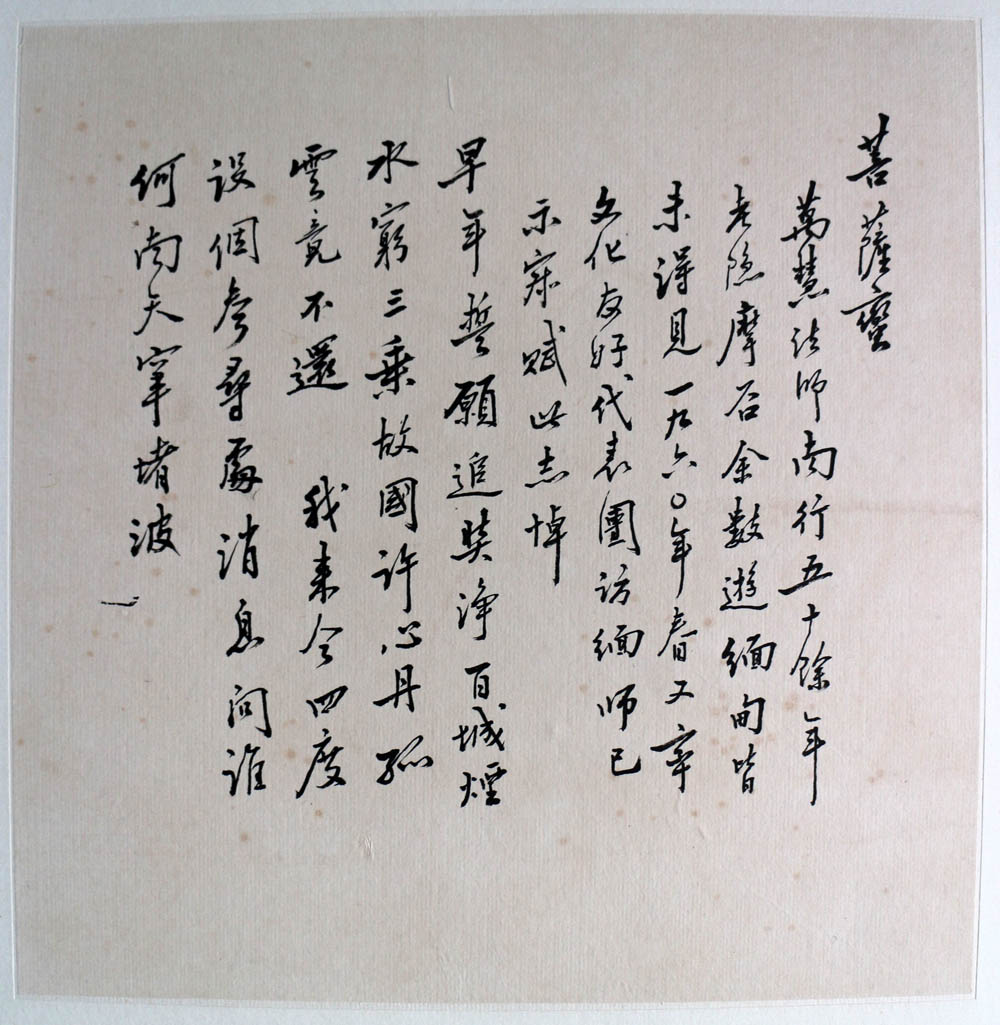 菩薩蠻
萬慧法師南行五十餘年
老隐摩谷余數遊緬甸皆
未得見一九六〇年春又率
文化友好代表團訪緬師已
示寂賦此志悼
早年誓願追奘淨百城煙
水窮三乘故國許心丹孤
雲竟不還 我來今四度
没個參尋處消息問誰
何南天窣堵波